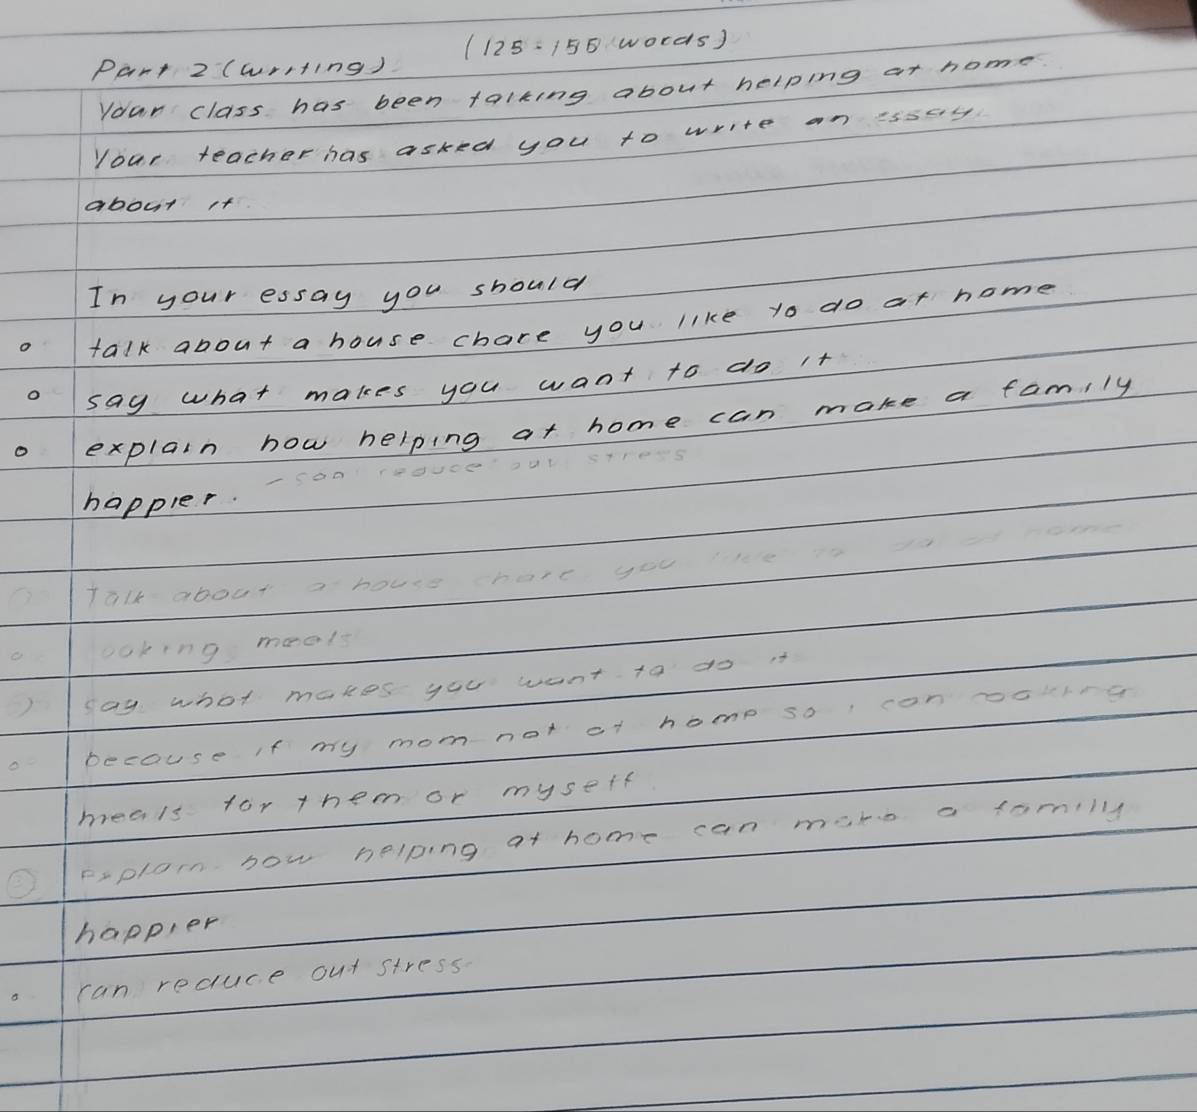 (125-155 words)
Part 2 (writing)
Your class has been talking about helping at home.
Your teacher has asked you to write an essay
about it.
In your essay you should
o talk about a house chore you like to do at home
o say what makes you want to do it
o explain how helping at home can make a family
happier. - can reduce out stress
Talk about a house chore you like to do at home
o cooking meals
say what makes you want to do it
o because if my mom not at home so i can cooking
meals for them or myself
explain how helping at home can make a familly
happier
o can reduce out stress